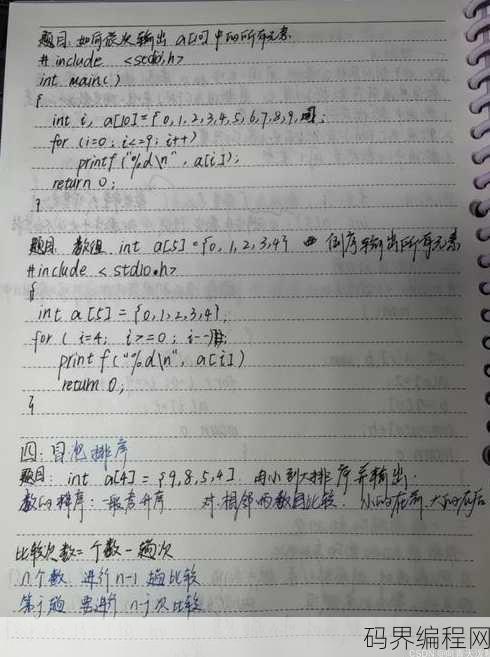 题目:如何依次输出 a[10]中的所有元素
#include <stdio.h>
int main()
{
int i, a[10]={0,1,2,3,4,5,6,7,8,9};
for (i=0; i<=9; i++)
printf("%d\n", a[i]);
return 0;
}
题目: 数组 int a[5]={0,1,2,3,4} 倒序输出所有元素
#include <stdio.h>
{
int a[5]={0,1,2,3,4};
for (i=4; i>=0; i--);
printf("%d\n", a[i])
return 0;
}
四:冒泡排序
题目: int a[4]={9,8,5,4} 由小到大排序并输出
数的排序:一般考升序 对相邻两数比较. 小的在前,大的在后
比较次数=个数-趟次
n个数、进行n-1趟比较
第j趟 要进行n-j次比较
码界编程网